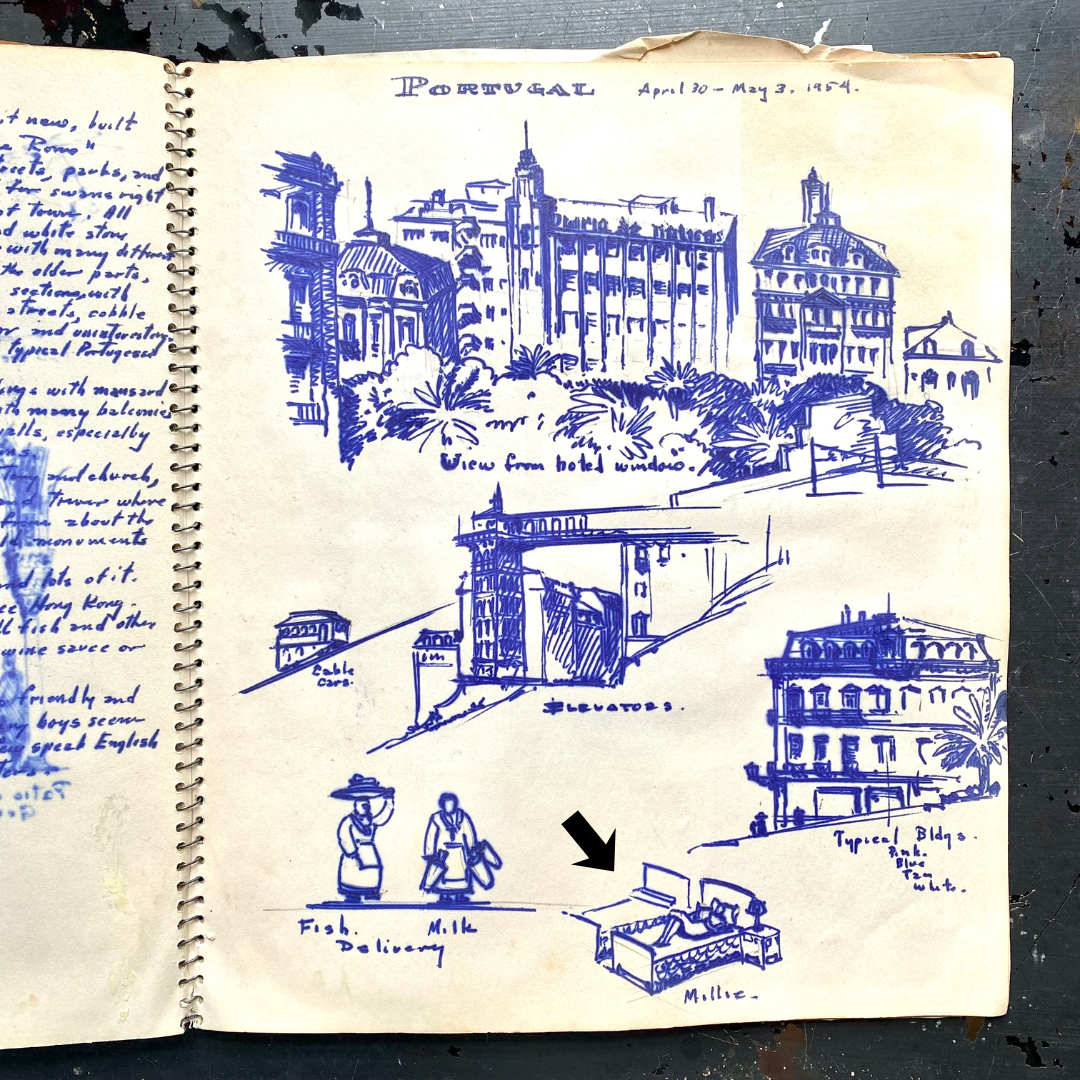 it new, built
Rome"
streets, parks, and
for swans right
of town. All
and white stone
with many different
the older parts,
sections, with
streets, cobble
or and
typical Portugese
with mansard
with many balconies
walls, especially
and church,
and tower where
about the
old monuments
and lots of it.
Hong Kong.
fish and other
wine sauce or
friendly and
boys seem
speak English
PORTUGAL April 30 - May 3, 1954.
Diario de Noticias
View from hotel window.
Cable
Cars.
ELEVATORS.
Typical Bldgs.
Pink.
Blue
Tan
White.
Fish. Milk
Delivery
Millie.